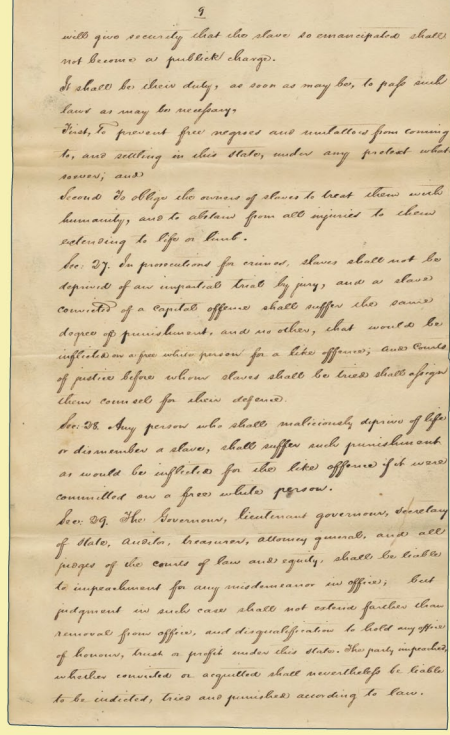 9
will give security that the slave so emancipated shall
not become a publick charge.
It shall be their duty, as soon as may be, to pass such
laws as may be necessary.
First, To prevent free negroes and mulattoes from coming
to, and settling in this state, under any pretext what
soever; and
Second To oblige the owners of slaves to treat them with
humanity, and to abstain from all injuries to them
extending to life or limb.
Sec. 27. In prosecutions for crimes, slaves shall not be
deprived of an impartial trial by jury, and a slave
convicted of a capital offence shall suffer the same
degree of punishment, and no other, that would be
inflicted on a free white person for a like offence; and Courts
of justice before whom slaves shall be tried shall assign
them counsel for their defence.
Sec. 28. Any person who shall maliciously deprive of life
or dismember a slave, shall suffer such punishment
as would be inflicted for the like offence if it were
committed on a free white person.
Sec. 29. The Governour, lieutenant governour, secretary
of state, auditor, treasurer, attorney general, and all
judges of the courts of law and equity, shall be liable
to impeachment for any misdemeanor in office; but
judgment in such case shall not extend farther than
removal from office, and disqualification to hold any office
of honour, trust or profit under this state. The party impeached,
whether convicted or acquitted shall nevertheless be liable
to be indicted, tried and punished according to law.